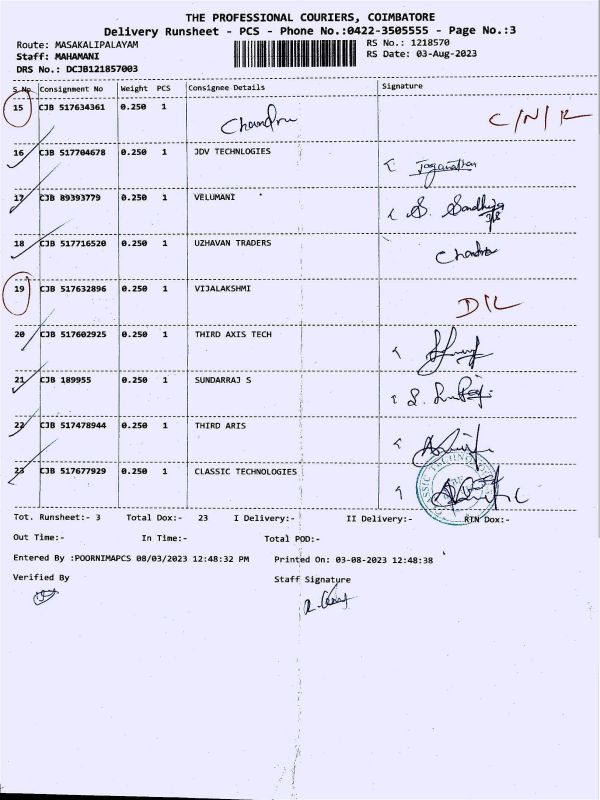 THE PROFESSIONAL COURIERS, COIMBATORE
Delivery Runsheet - PCS - Phone No.:0422-3505555 - Page No.:3
Route: MASAKALIPALAYAM RS No.: 1218570
Staff: MAHAMANI RS Date: 03-Aug-2023
DRS No.: DCJB121857003
S.No Consignment No Weight PCS Consignee Details Signature
15 CJB 517634361 0.250 1 Chandru C/N/R
16 CJB 517704678 0.250 1 JDV TECHNLOGIES Jaganathan
17 CJB 89393779 0.250 1 VELUMANI S. Sandhiya 3/8
18 CJB 517716520 0.250 1 UZHAVAN TRADERS Chandra
19 CJB 517632896 0.250 1 VIJALAKSHMI D/L
20 CJB 517602925 0.250 1 THIRD AXIS TECH
21 CJB 189955 0.250 1 SUNDARRAJ S
22 CJB 517478944 0.250 1 THIRD ARIS
23 CJB 517677929 0.250 1 CLASSIC TECHNOLOGIES
Tot. Runsheet:- 3 Total Dox:- 23 I Delivery:- II Delivery:- RTN Dox:-
Out Time:- In Time:- Total POD:-
Entered By :POORNIMAPCS 08/03/2023 12:48:32 PM Printed On: 03-08-2023 12:48:38
Verified By Staff Signature